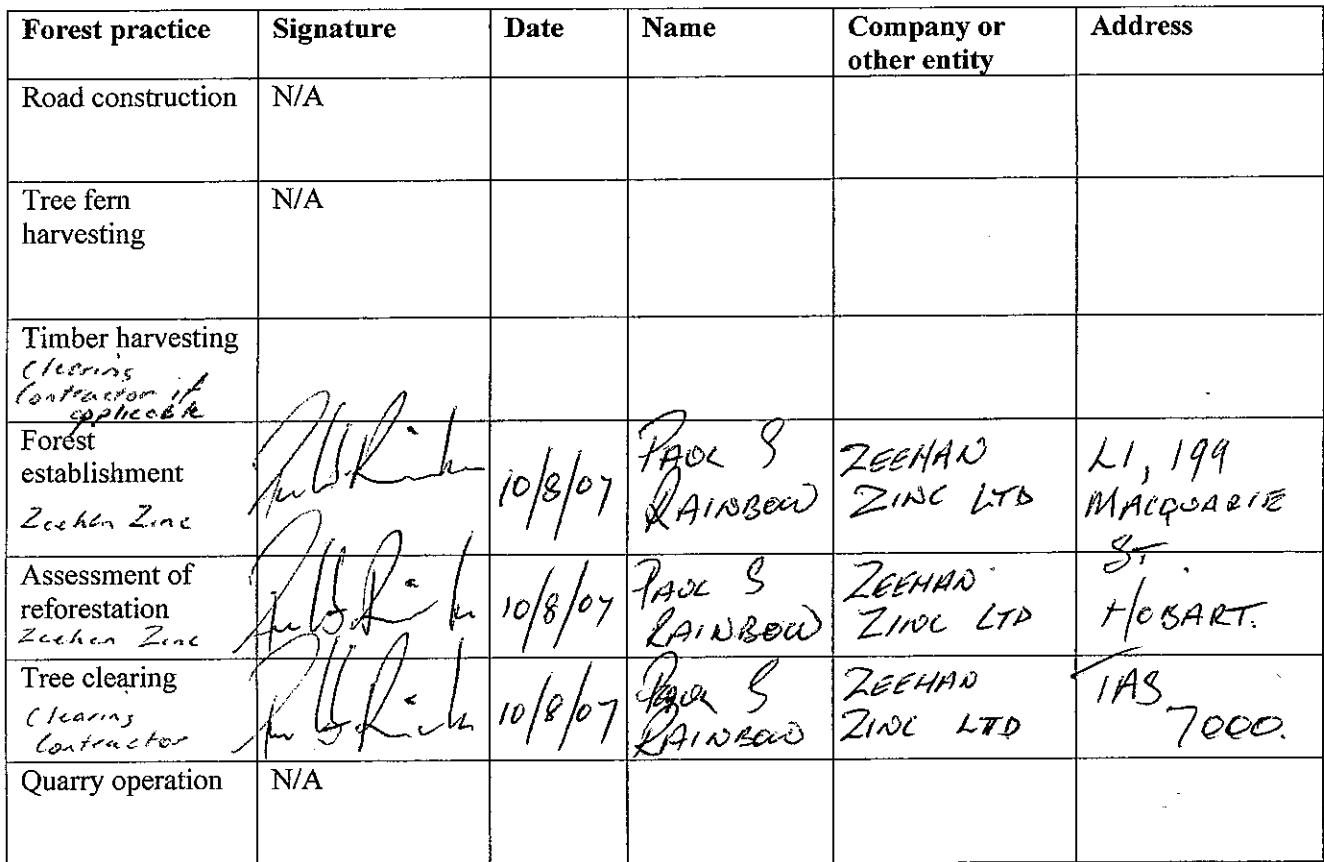 Forest practice Signature Date Name Company or other entity Address
Road construction N/A
Tree fern harvesting N/A
Timber harvesting
Clearing
Contractor if
applicable
Forest establishment
Zeehan Zinc
10/8/07
PAUL S
RAINBOW
ZEEHAN
ZINC LTD
L1, 199
MACQUARIE
ST.
HOBART.
TAS
7000.
Assessment of reforestation
Zeehan Zinc
10/8/07
PAUL S
RAINBOW
ZEEHAN
ZINC LTD
Tree clearing
Clearing
Contractor
10/8/07
PAUL S
RAINBOW
ZEEHAN
ZINC LTD
Quarry operation N/A